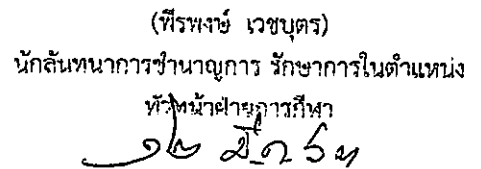 (พีรพงษ์ เวชบุตร)
นักสันทนาการชำนาญการ รักษาการในตำแหน่ง
หัวหน้าฝ่ายการกีฬา
๑๒ มี.ค.